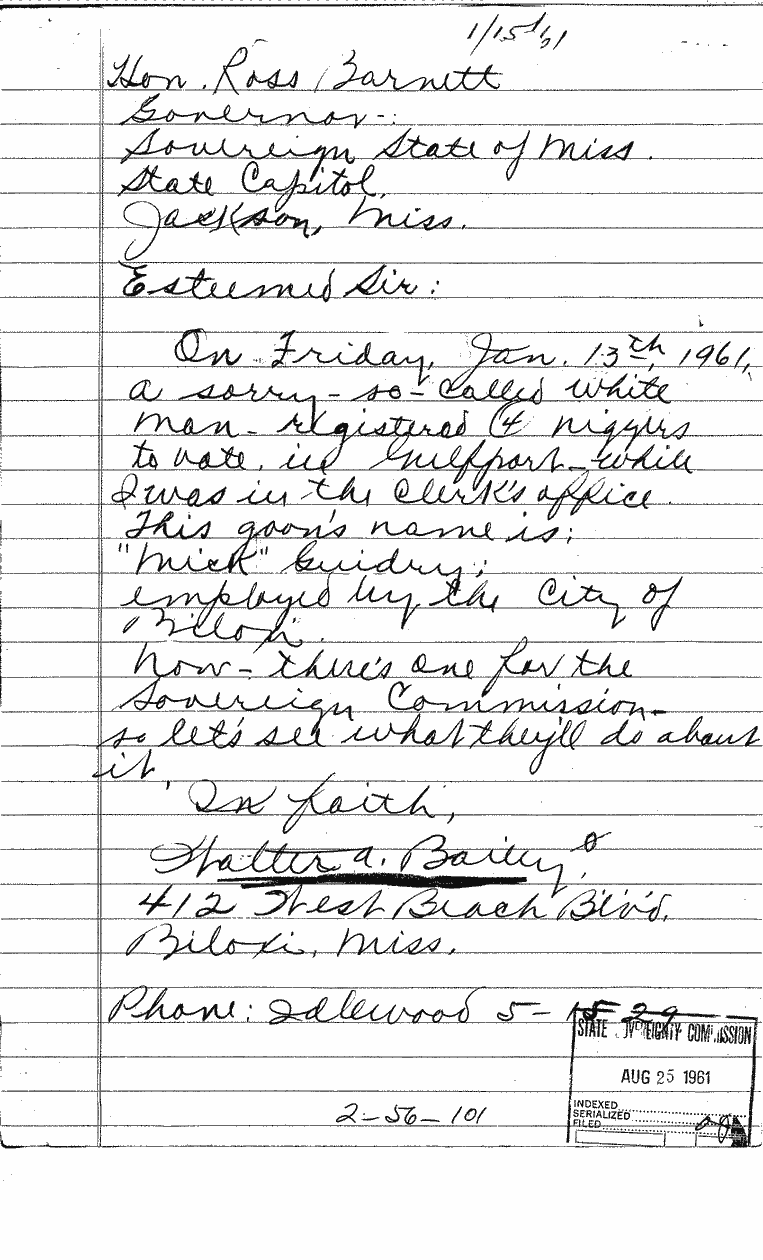 1/15/61
Hon. Ross Barnett
Governor-:
Sovereign State of Miss.
State Capitol,
Jackson, Miss.
Esteemed Sir:
On Friday, Jan. 13th, 1961,
a sorry-so-called white
man-registered (4 niggers
to vote, in Gulfport-while
I was in the Clerk's office.
This goon's name is:
"Mick" Guidry;
employed by the City of
Biloxi.
Now-there's one for the
Sovereign Commission-
so let's see what they'll do about
it.
In faith,
Walter A. Bailey
412 West Beach Blvd.
Biloxi, Miss.
Phone: Idlewood 5-1529
STATE SOVEREIGNTY COMMISSION
AUG 25 1961
INDEXED
SERIALIZED
FILED
2-56-101